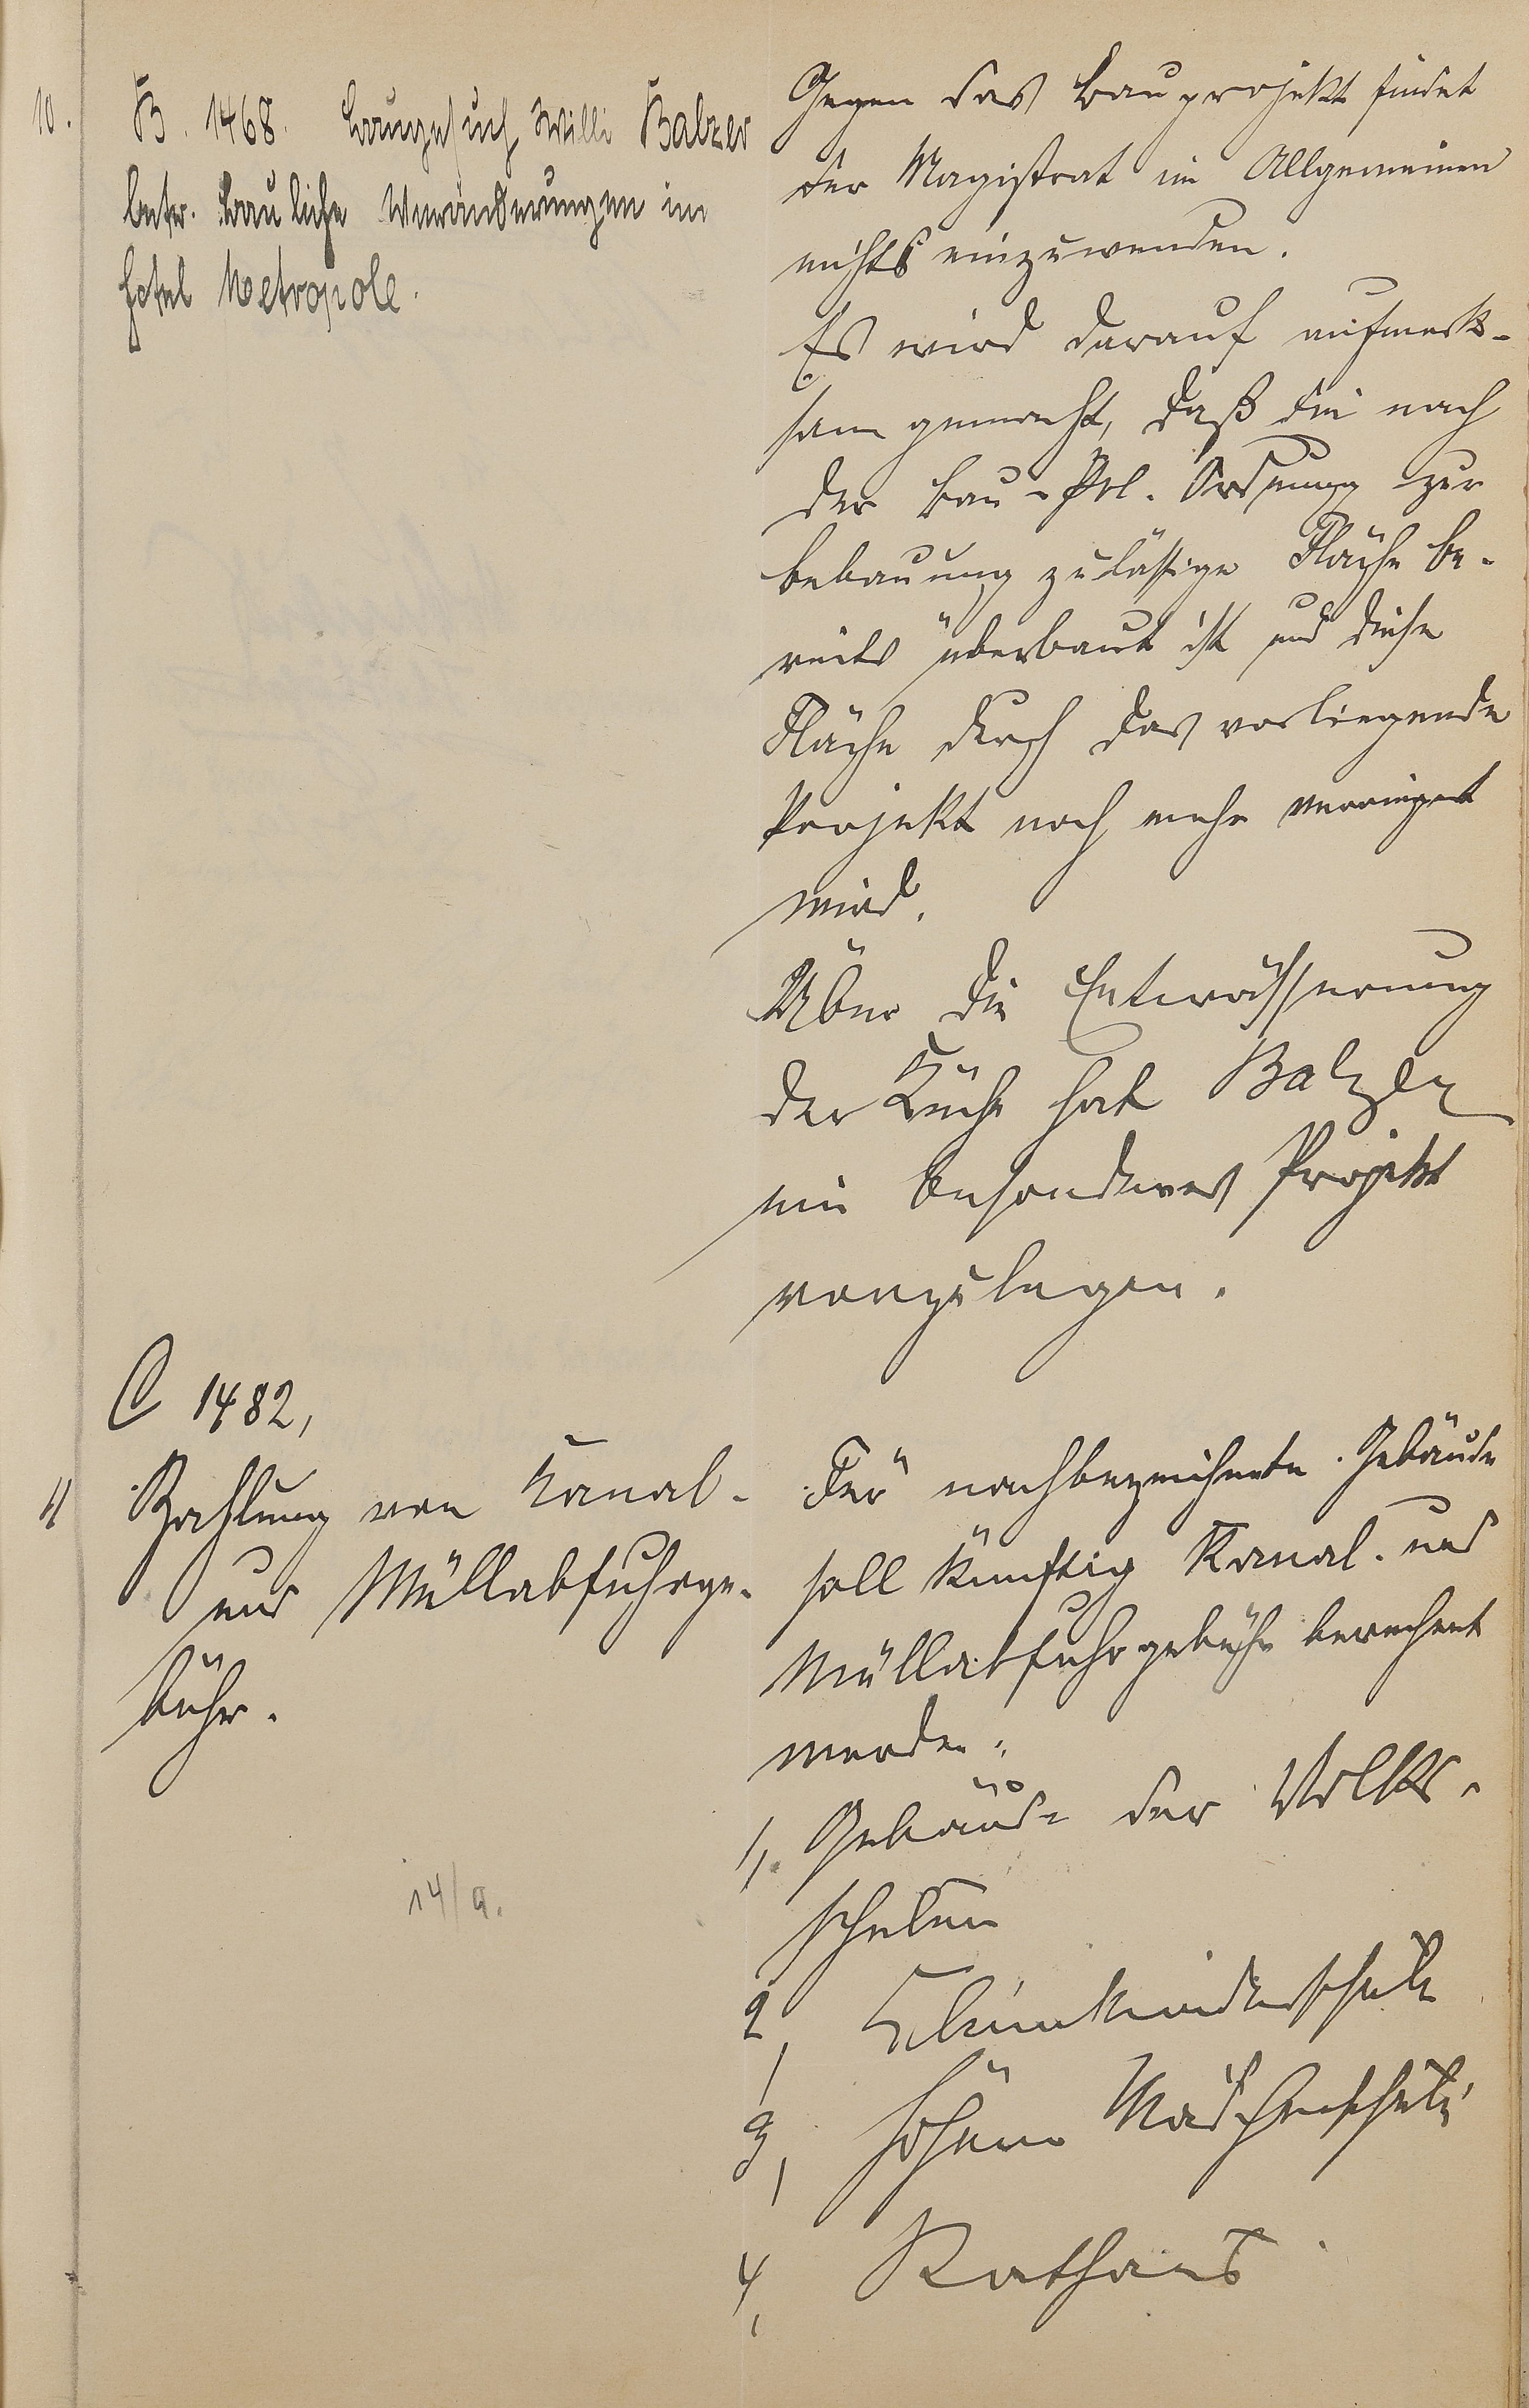 10.
B. 1468. Baugesuch Willi Balzer
betr. bauliche Veränderungen im
Hotel Metropole.
Gegen das Bauprojekt findet
der Magistrat im Allgemeinen
nichts einzuwenden.
Es wird darauf aufmerk-
sam gemacht, daß die nach
der Bau-Pol. Ordnung zur
Bebauung zulässige Fläche be-
reits überbaut ist und diese
Fläche durch das vorliegende
Projekt noch mehr verringert
wird.
Über die Entwässerung
der Küche hat Balzer
ein besonderes Projekt
vorzulegen.
C 1482,
11
Zahlung von Kanal-
und Müllabfuhrge-
bühr.
14/9.
Für nachbezeichnete Gebäude
soll künftig Kanal- und
Müllabfuhrgebühr berechnet
werden:
1, Gebäude der Volks-
schulen
2, Kleinkinderschule
3, höhere Mädchenschule
4, Rathaus